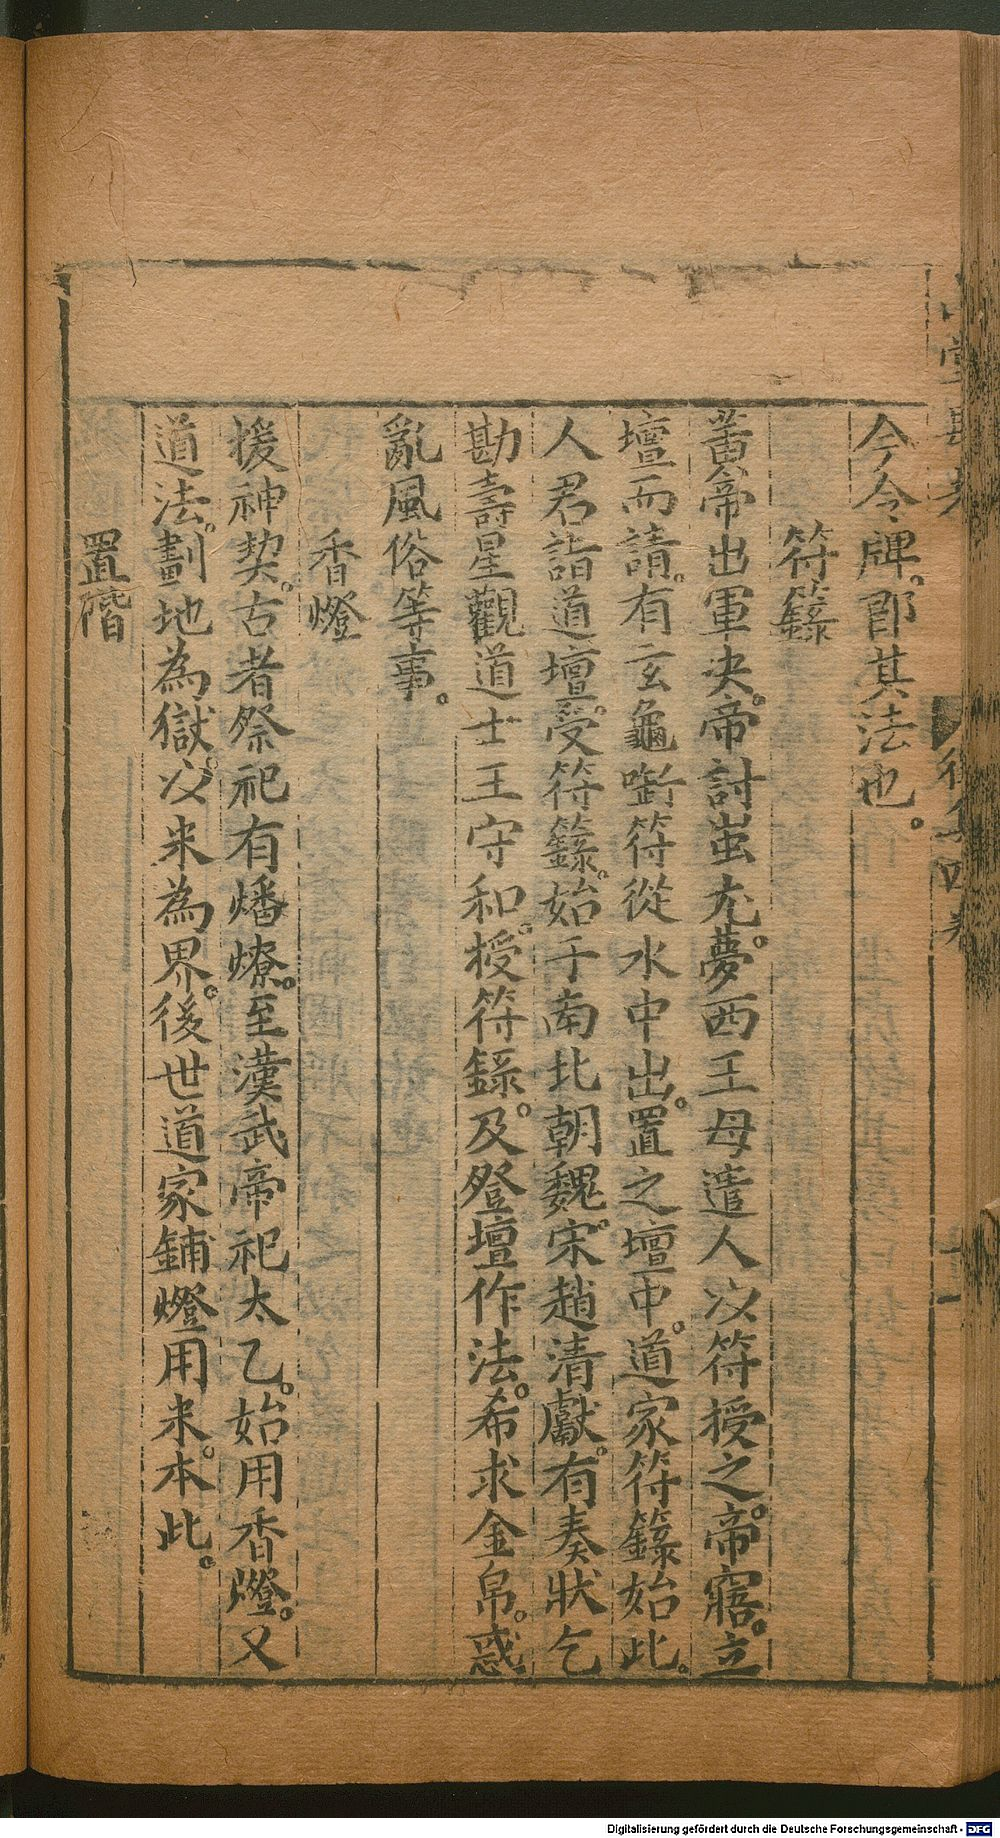 今令牌。即其法也。
符籙
黃帝出軍决。帝討蚩尤。夢西王母遣人以符授之。帝寤。立
壇而請。有玄龜啣符從水中出。置之壇中。道家符籙始此。
人君詣道壇。受符籙。始于南北朝魏。宋。趙清獻。有奏狀乞
勘壽星觀道士王守和。授符籙。及登壇作法。希求金帛。惑
亂風俗等事。
香燈
援神契。古者祭祀有燔燎。至漢武帝祀太乙。始用香燈。又
道法。劃地為獄。以米為界。後世道家鋪燈用米。本此。
置
Digitalisierung gefördert durch die Deutsche Forschungsgemeinschaft - DFG